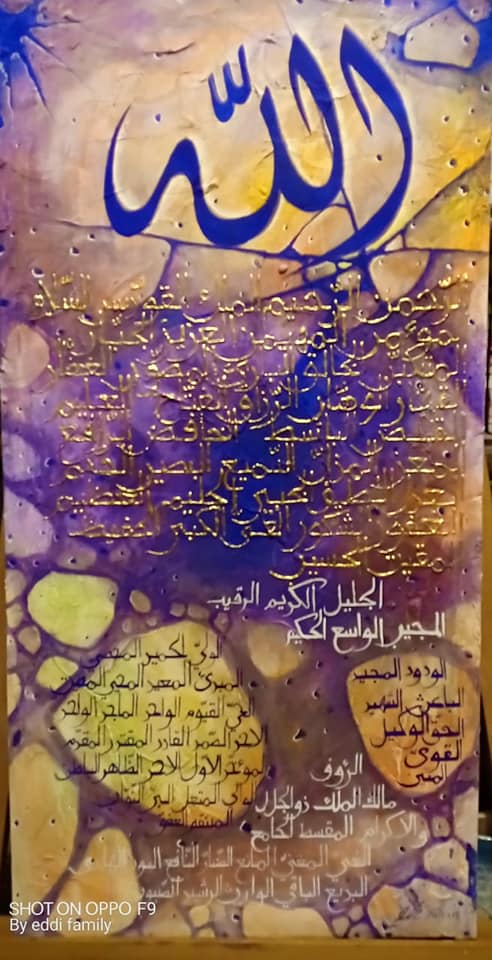 الله
الرحمن الرحيم الملك القدوس السلام
المؤمن المهيمن العزيز الجبار
المتكبر الخالق البارئ المصور الغفار
القهار الوهاب الرزاق الفتاح العليم
القابض الباسط الخافض الرافع
المعز المذل السميع البصير الحكم
العدل اللطيف الخبير الحليم العظيم
الغفور الشكور العلي الكبير الحفيظ
المقيت الحسيب
الجليل الكريم الرقيب
المجيب الواسع الحكيم
الودود المجيد
الباعث الشهيد
الحق الوكيل
القوي
المتين
الولي الحميد المحصي
المبدئ المعيد المحيي المميت
الحي القيوم الواجد الماجد الواحد
الاحد الصمد القادر المقتدر المقدم
المؤخر الاول الاخر الظاهر الباطن
الوالي المتعال البر التواب
المنتقم العفو
الرؤوف
مالك الملك ذوالجلال
والاكرام المقسط الجامع
الغني المغني المانع الضار النافع النور الهادي
البديع الباقي الوارث الرشيد الصبور
SHOT ON OPPO F9
By eddi family